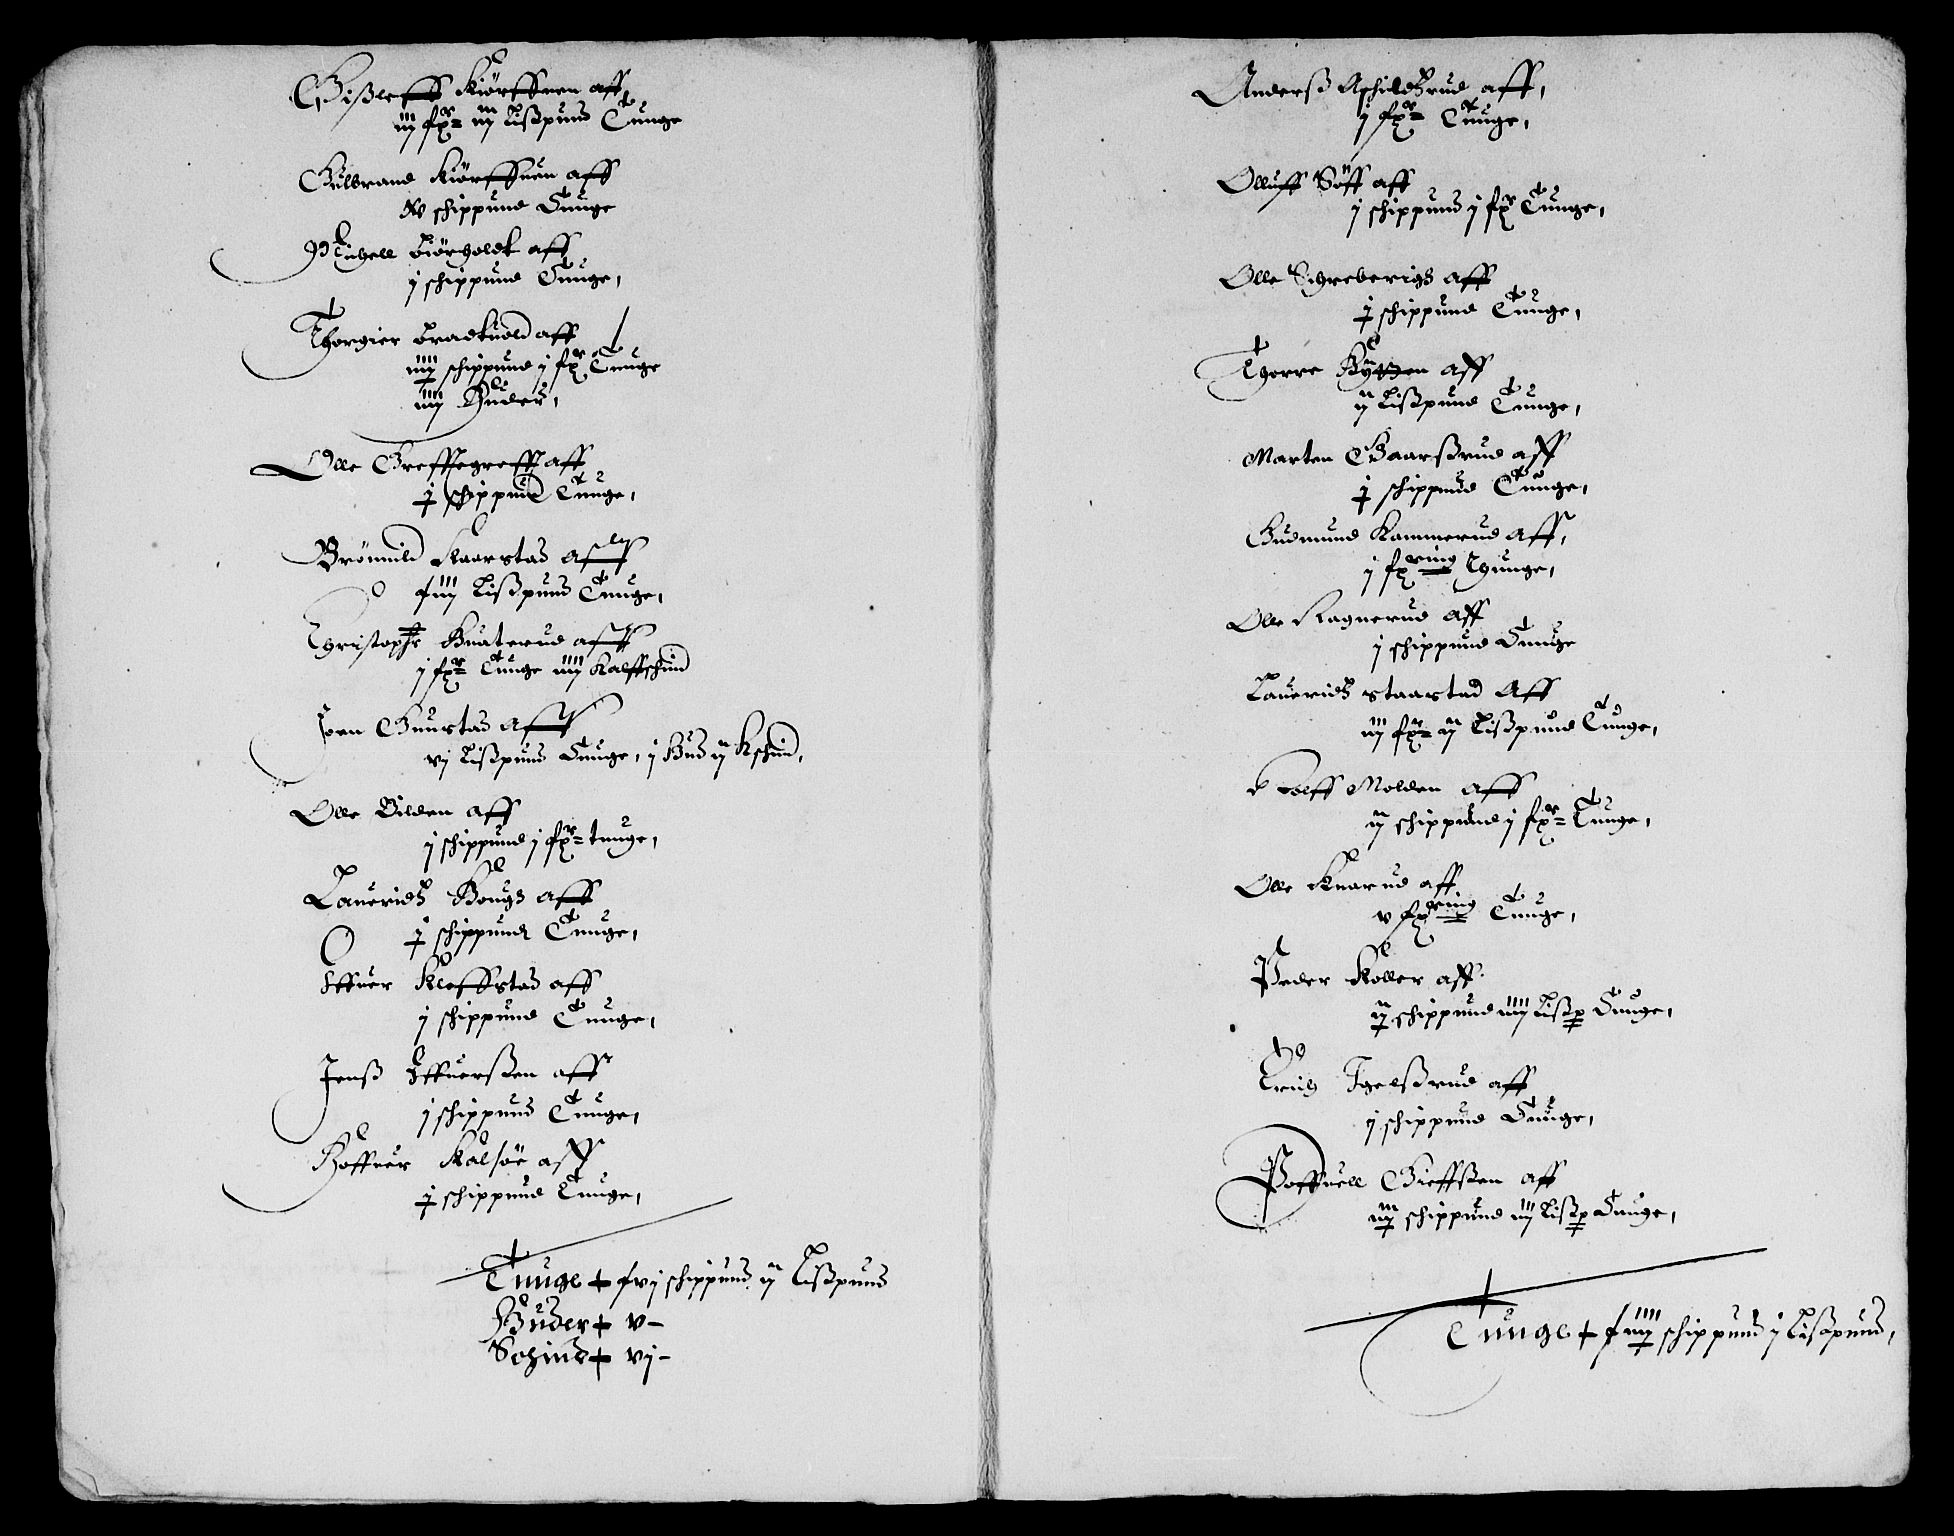 Gißleff Kiørffuen aff,
iij fxr= iij Lißpund Tunge
Gulbrand Kiørffuen aff
xv schippund Tunge
Michell Biørholdt aff
j schippund Tunge,
Thorgier Bradkuold aff
iiij schippund j fxr Tunge
iiij Huder,
Olle Greffsgreff aff
j schippund Tunge,
Brønnild Kaarstad aff
iij Lißpund Tunge,
Christopher Knaterud aff
j fxr= Tunge iiij Kalffschind
Joen Guurstad aff
vj Lißpund Tunge, j Hud ij Kschind,
Olle Bilden aff
j schippund j fxr= tunge,
Lauerids Houg aff
j schippund Tunge,
Iffuer Kleffstad aff
j schippund Tunge,
Jenß Iffuerßen aff
j schippund Tunge,
Haffuer Kalsøe aff
j schippund Tunge,
Tunge + xvj schippund ij Lißpund
Huder + v-
Schind + vj-
Anderß Aschildsrud aff,
j fxr= Tunge,
Olluff Søff aff
j schippund j fxr Tunge,
Olle Schreberigs aff
j schippund Tunge,
Thorre aff
ij Lißpund Tunge,
Marten Gaarßrud aff
j schippund Tunge,
Gudmund Kammerud aff,
j fxring Thunge,
Olle Ragnerud aff
j schippund Tunge
Lauerids Staarstad aff
iij fxr= ij Lißpund Tunge,
Rolff Molden aff
ij schippund j fxr= Tunge,
Olle Knarud aff
v fxring Tunge,
Peder Koller aff
ij schippund iiij Lißp Tunge,
Erich Egelßrud aff
j schippund Tunge,
Poffuell Gieffßen aff
iij schippund iij Lißp Tunge,
Tunge + xiiij schippund j Lißpund,